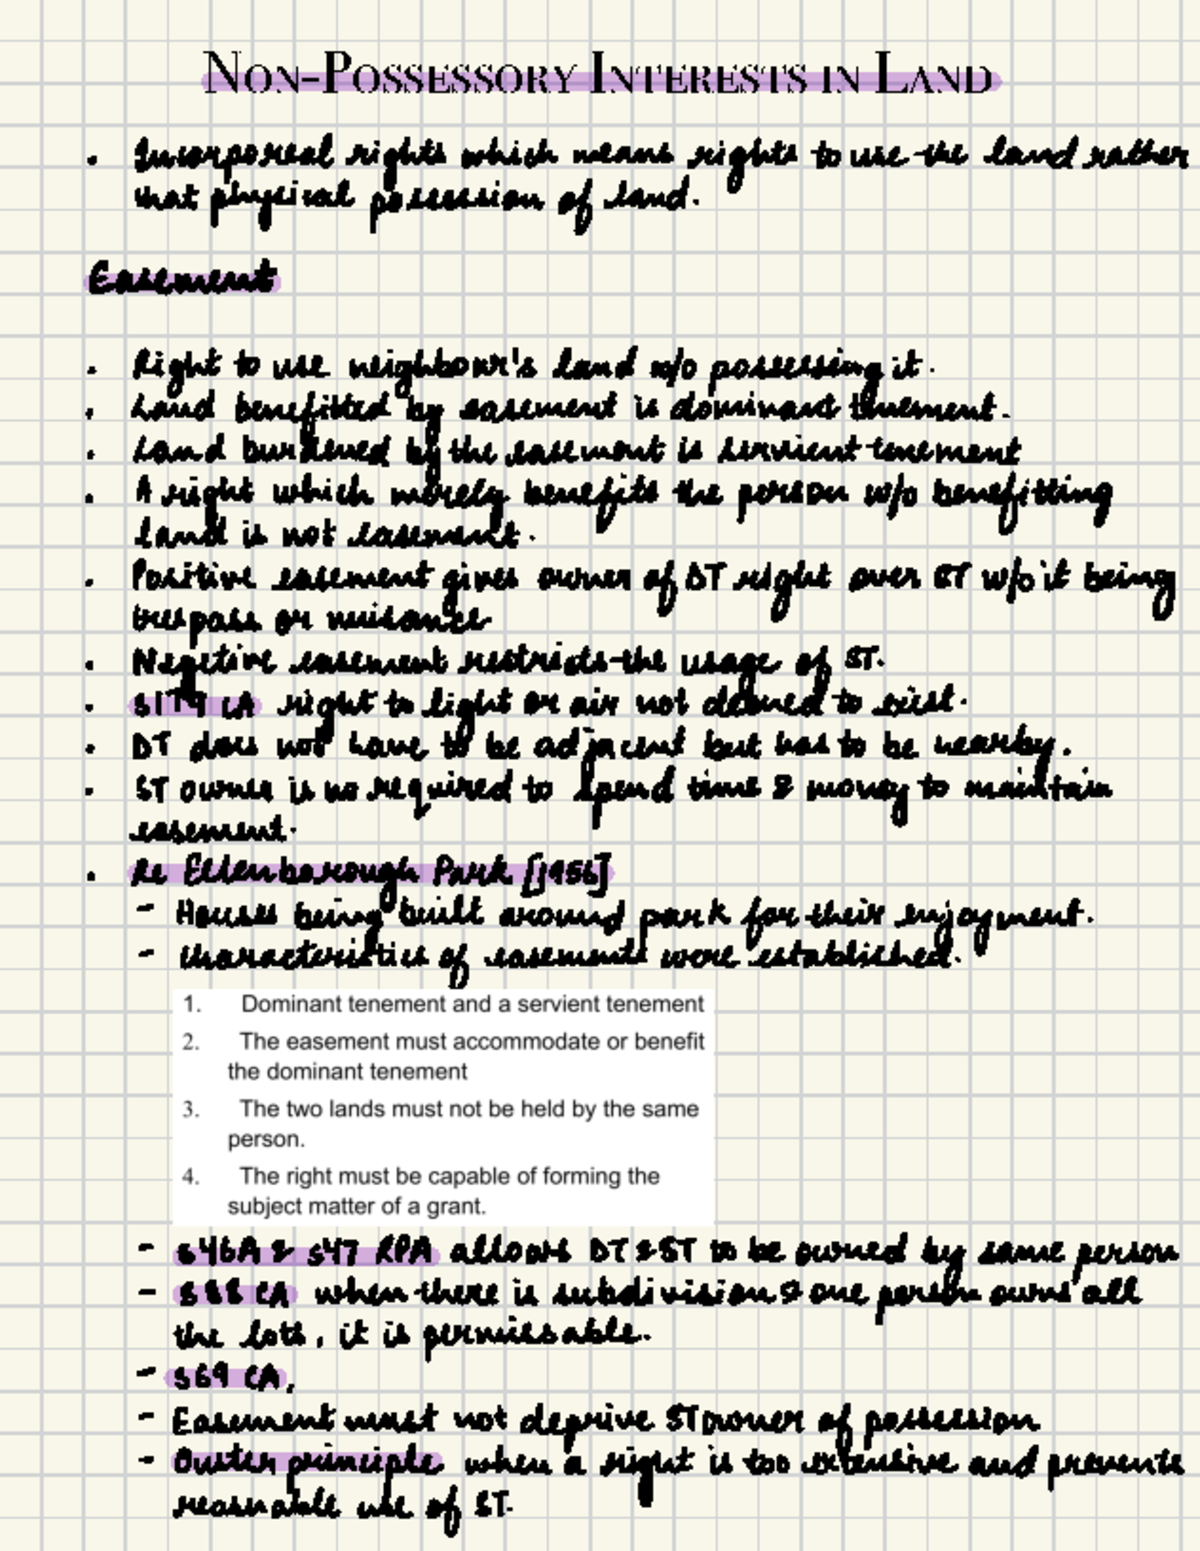 NON-POSSESSORY INTERESTS IN LAND
. Incorporeal rights which means rights to use the land rather
that physical possession of land.
Easement
. Right to use neighbour's land w/o possessing it.
. Land benefitted by easement is dominant tenement.
. Land burdened by the easement is servient tenement
. A right which merely benefits the person w/o benefitting
land is not easement.
. Positive easement gives owner of DT right over ST w/o it being
trespass or nuisance
. Negetive easement restricts the usage of ST.
. S179 CA right to light or air not deemed to exist.
. DT does not have to be adjacent but has to be nearby.
. ST owner is no required to spend time & money to maintain
easement.
. Re Ellenborough Park [1956]
- Houses being built around park for their enjoyment.
- Characteristics of easements were established.
1. Dominant tenement and a servient tenement
2. The easement must accommodate or benefit
the dominant tenement
3. The two lands must not be held by the same
person.
4. The right must be capable of forming the
subject matter of a grant.
- S46A & S47 RPA allows DT & ST to be owned by same person
- S88 CA when there is subdivision & one person owns all
the lots, it is permissable.
- S69 CA,
- Easement must not deprive ST owner of possession
- Ouster principle when a right is too extensive and prevents
reasonable use of ST.